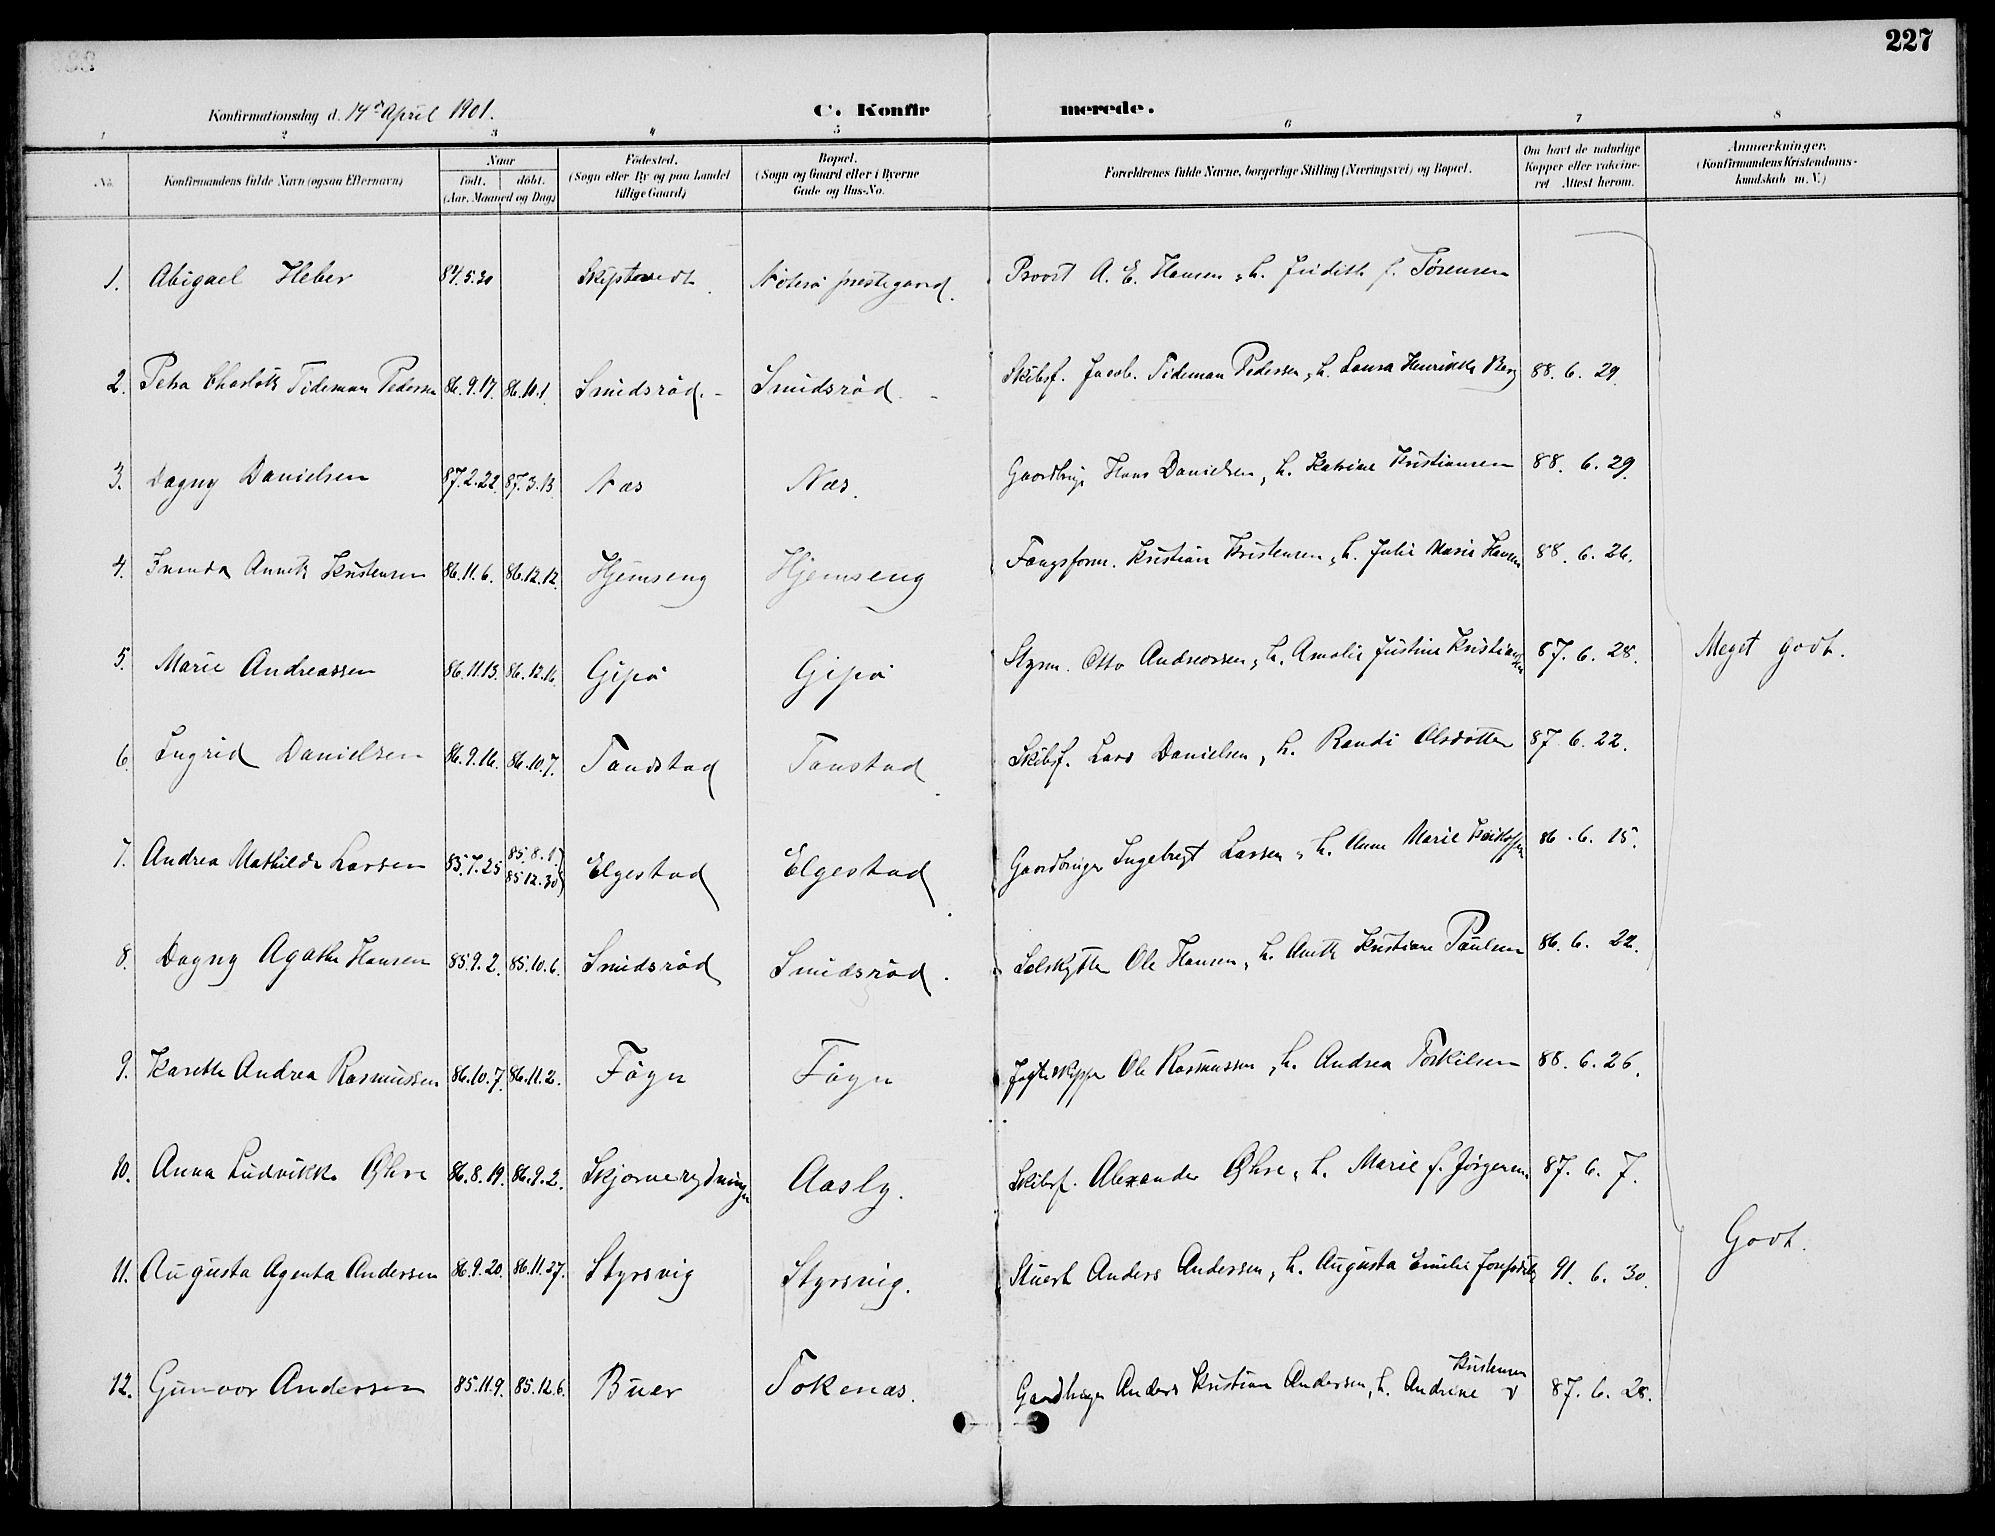 227
Konfirmationsdag d. 14de April 1901.
C. Konfirmerede.
1 2 3 4 5 6 7 8
No.
Konfirmandens fulde Navn (ogsaa Efternavn)
Naar
født. døbt.
(Aar, Maaned og Dag)
Fødested.
(Sogn eller By og paa Landet
tillige Gaard)
Bopæl.
(Sogn og Gaard eller i Byerne
Gade og Hus-No.
Forældrenes fulde Navne, borgerlige Stilling (Næringsvei) og Bopæl.
Om havt de naturlige
Kopper eller vakcine-
ret Attest herom.
Anmerkninger.
(Konfirmandens Kristendoms-
kundskab m. V.)
1. Abigael Heber 84.5.30 Skiptvedt Nøterø prestegaard. Provst A. E. Hansen, h. Judith f. Sørensen
2. Petra Charlotte Tideman Pedersen 86.9.17. 86.10.1. Smidsrød. Smidsrød. Skibsf. Jacob Tideman Pedersen, h. Laura Henrikke Berg 88. 6. 29.
3. Dagny Danielsen 87.2.22. 87.3.13. Næs Næs. Gaardbrug. Hans Danielsen, h. Katrine Kristiansen 88. 6. 29.
4. Annette Kristensen 86.11.6. 86.12.12. Hjemseng Hjemseng Fangsform. Kristian Kristensen, h. Julie Marie Hansen 88. 6. 26.
5. Marie Andreassen 86.11.13. 86.12.16. Gipø Gipø Styrm. Otto Andreassen, h. Amalie Justine Kristiansen 87. 6. 28. Meget godt.
6. Ingrid Danielsen 86.9.16. 86.10.7. Tandstad Tanstad. Skibsf. Lars Danielsen, h. Randi Olsdotter 87. 6. 22.
7. Andrea Mathilde Larsen 85.7.25 85.8.1. 85.12.30 Elgestad Elgestad. Gaardbruger Ingebregt Larsen, h. Anne Marie 86. 6. 15.
8. Dagny Agathe Hansen 85.9.2. 85.10.6. Smidsrød Smidsrød. Selskytter Ole Hansen, h. Anette Kristiane Paulsen 86. 6. 22.
9. Karette Andrea Rasmussen 86.10.7. 86.11.2. Føyn Føyn Jagteskipper Ole Rasmussen, h. Andrea Torkilsen 88. 6. 26.
10. Anna Ludvikke Øhre 86.8.19. 86.9.2. Skjærverydningen Aasly. Skibsf. Alexander Øhre, h. Marie f. Jørgensen 87. 6. 7.
11. Augusta Agenta Andersen 86.9.20. 86.11.27. Styrsvig Styrsvig. Stuert Anders Andersen, h. Augusta Emilie 91. 6. 30. Godt.
12. Gunvor Andersen 85.11.9. 85.12.6. Buer Tokenæs. Gaardbruger Anders Kristian Andersen, h. Andrine Kristensen 87. 6. 28.